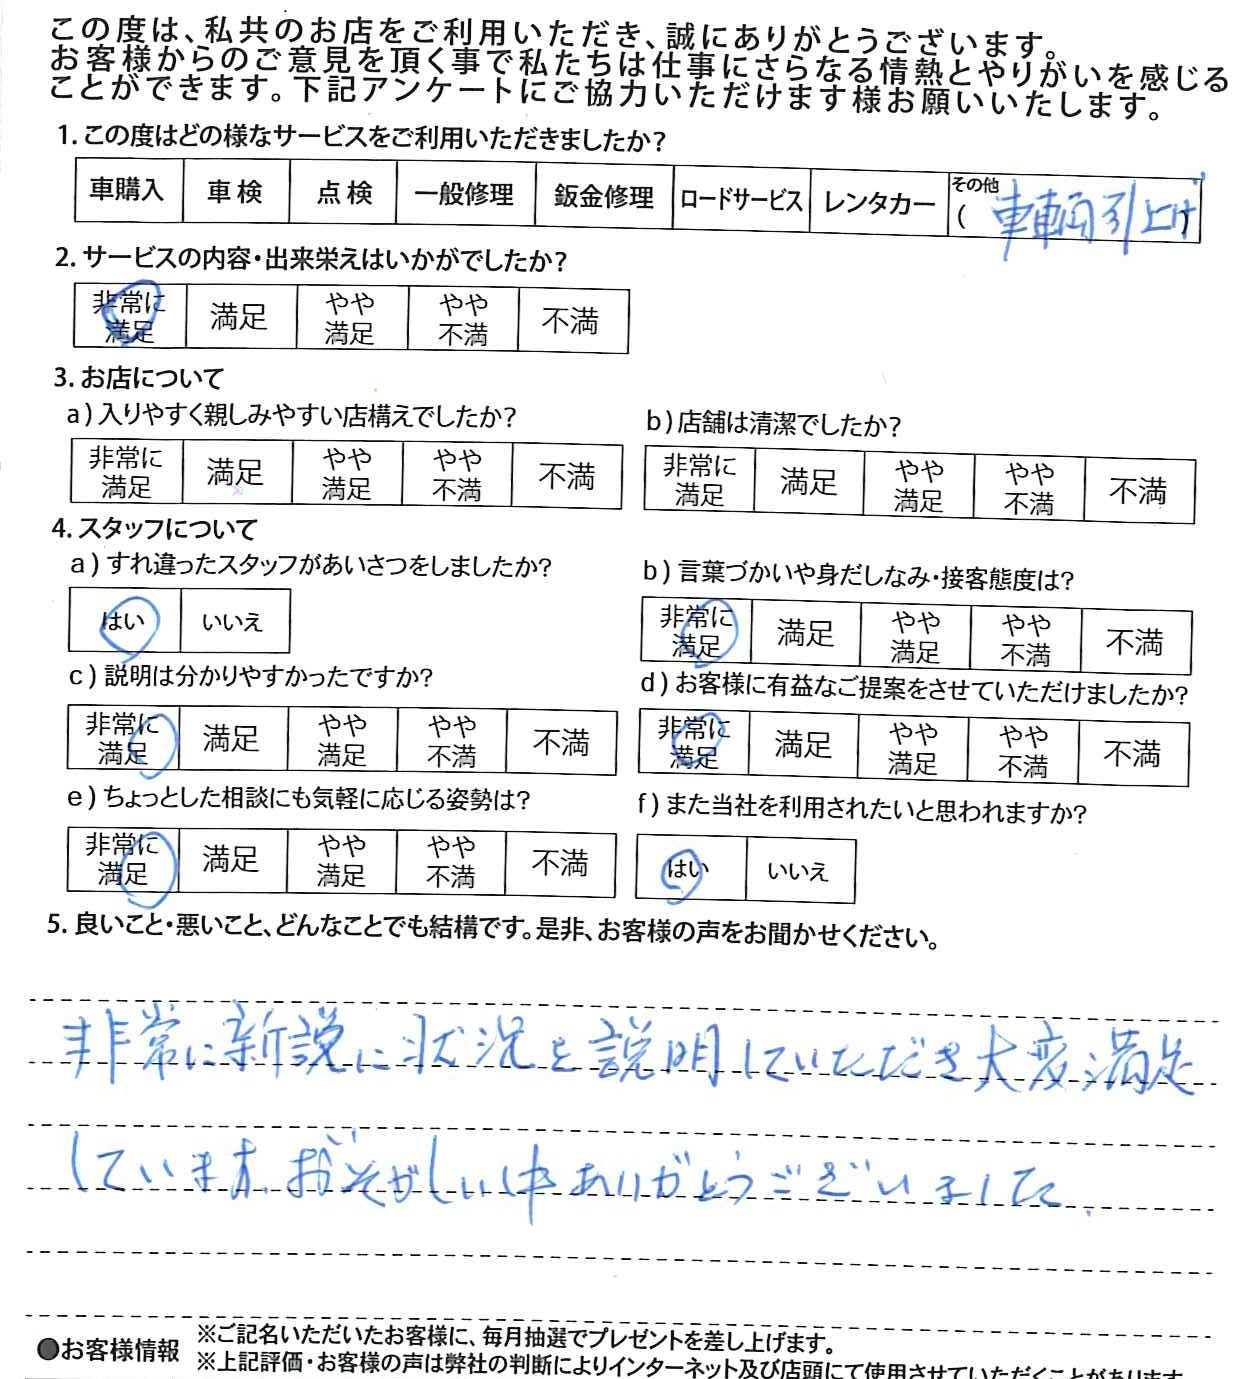 この度は、私共のお店をご利用いただき、誠にありがとうございます。
お客様からのご意見を頂く事で私たちは仕事にさらなる情熱とやりがいを感じる
ことができます。下記アンケートにご協力いただけます様お願いいたします。
1. この度はどの様なサービスをご利用いただきましたか?
車購入 車検 点検 一般修理 鈑金修理 ロードサービス レンタカー その他
( 車輌引上げ )
2. サービスの内容・出来栄えはいかがでしたか?
非常に満足 満足 やや満足 やや不満 不満
3. お店について
a) 入りやすく親しみやすい店構えでしたか?
非常に満足 満足 やや満足 やや不満 不満
b) 店舗は清潔でしたか?
非常に満足 満足 やや満足 やや不満 不満
4. スタッフについて
a) すれ違ったスタッフがあいさつをしましたか?
はい いいえ
b) 言葉づかいや身だしなみ・接客態度は?
非常に満足 満足 やや満足 やや不満 不満
c) 説明は分かりやすかったですか?
非常に満足 満足 やや満足 やや不満 不満
d) お客様に有益なご提案をさせていただけましたか?
非常に満足 満足 やや満足 やや不満 不満
e) ちょっとした相談にも気軽に応じる姿勢は?
非常に満足 満足 やや満足 やや不満 不満
f) また当社を利用されたいと思われますか?
はい いいえ
5. 良いこと・悪いこと、どんなことでも結構です。是非、お客様の声をお聞かせください。
非常に新説に状況を説明していただき大変満足
しています。おいそがしい中ありがとうございました。
●お客様情報 ※ご記名いただいたお客様に、毎月抽選でプレゼントを差し上げます。
※上記評価・お客様の声は弊社の判断によりインターネット及び店頭にて使用させていただくことがあります